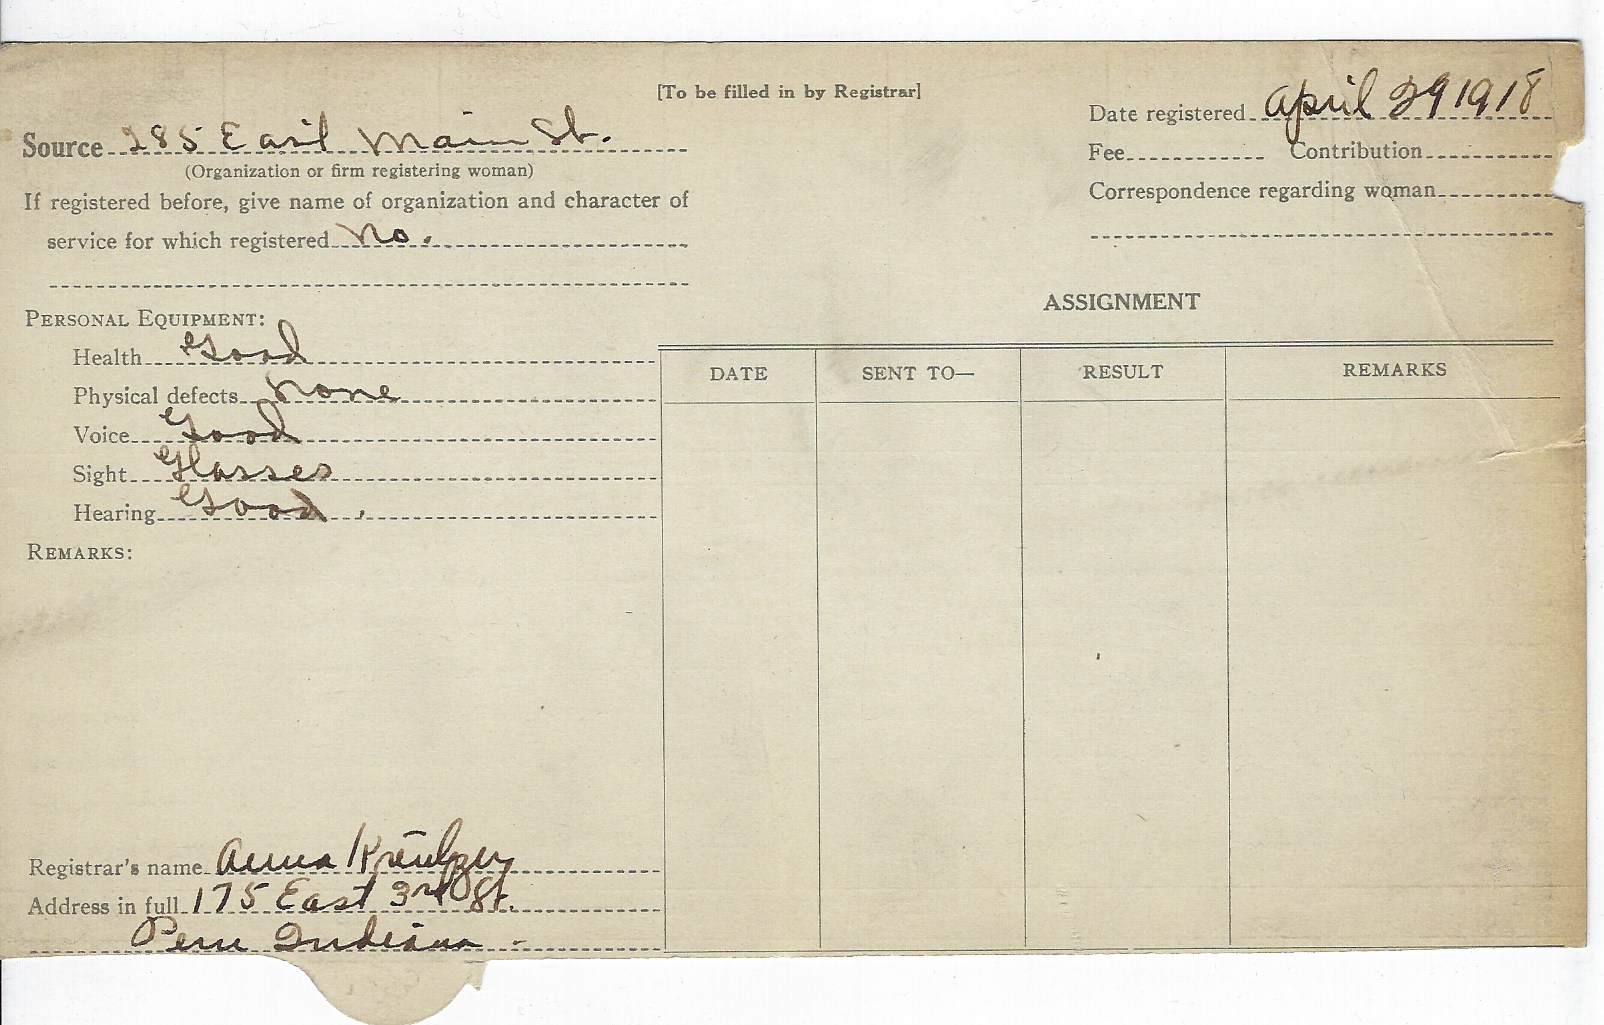 [To be filled in by Registrar]
Source 285 East Main St.
(Organization or firm registering woman)
If registered before, give name of organization and character of
service for which registered No.
Date registered April 29 1918
Fee Contribution
Correspondence regarding woman
PERSONAL EQUIPMENT:
Health Good
Physical defects None
Voice Good
Sight Glasses
Hearing Good.
REMARKS:
ASSIGNMENT
DATE SENT TO— RESULT REMARKS
Registrar's name Anna
Address in full 175 East 3rd St.
Peru Indiana -